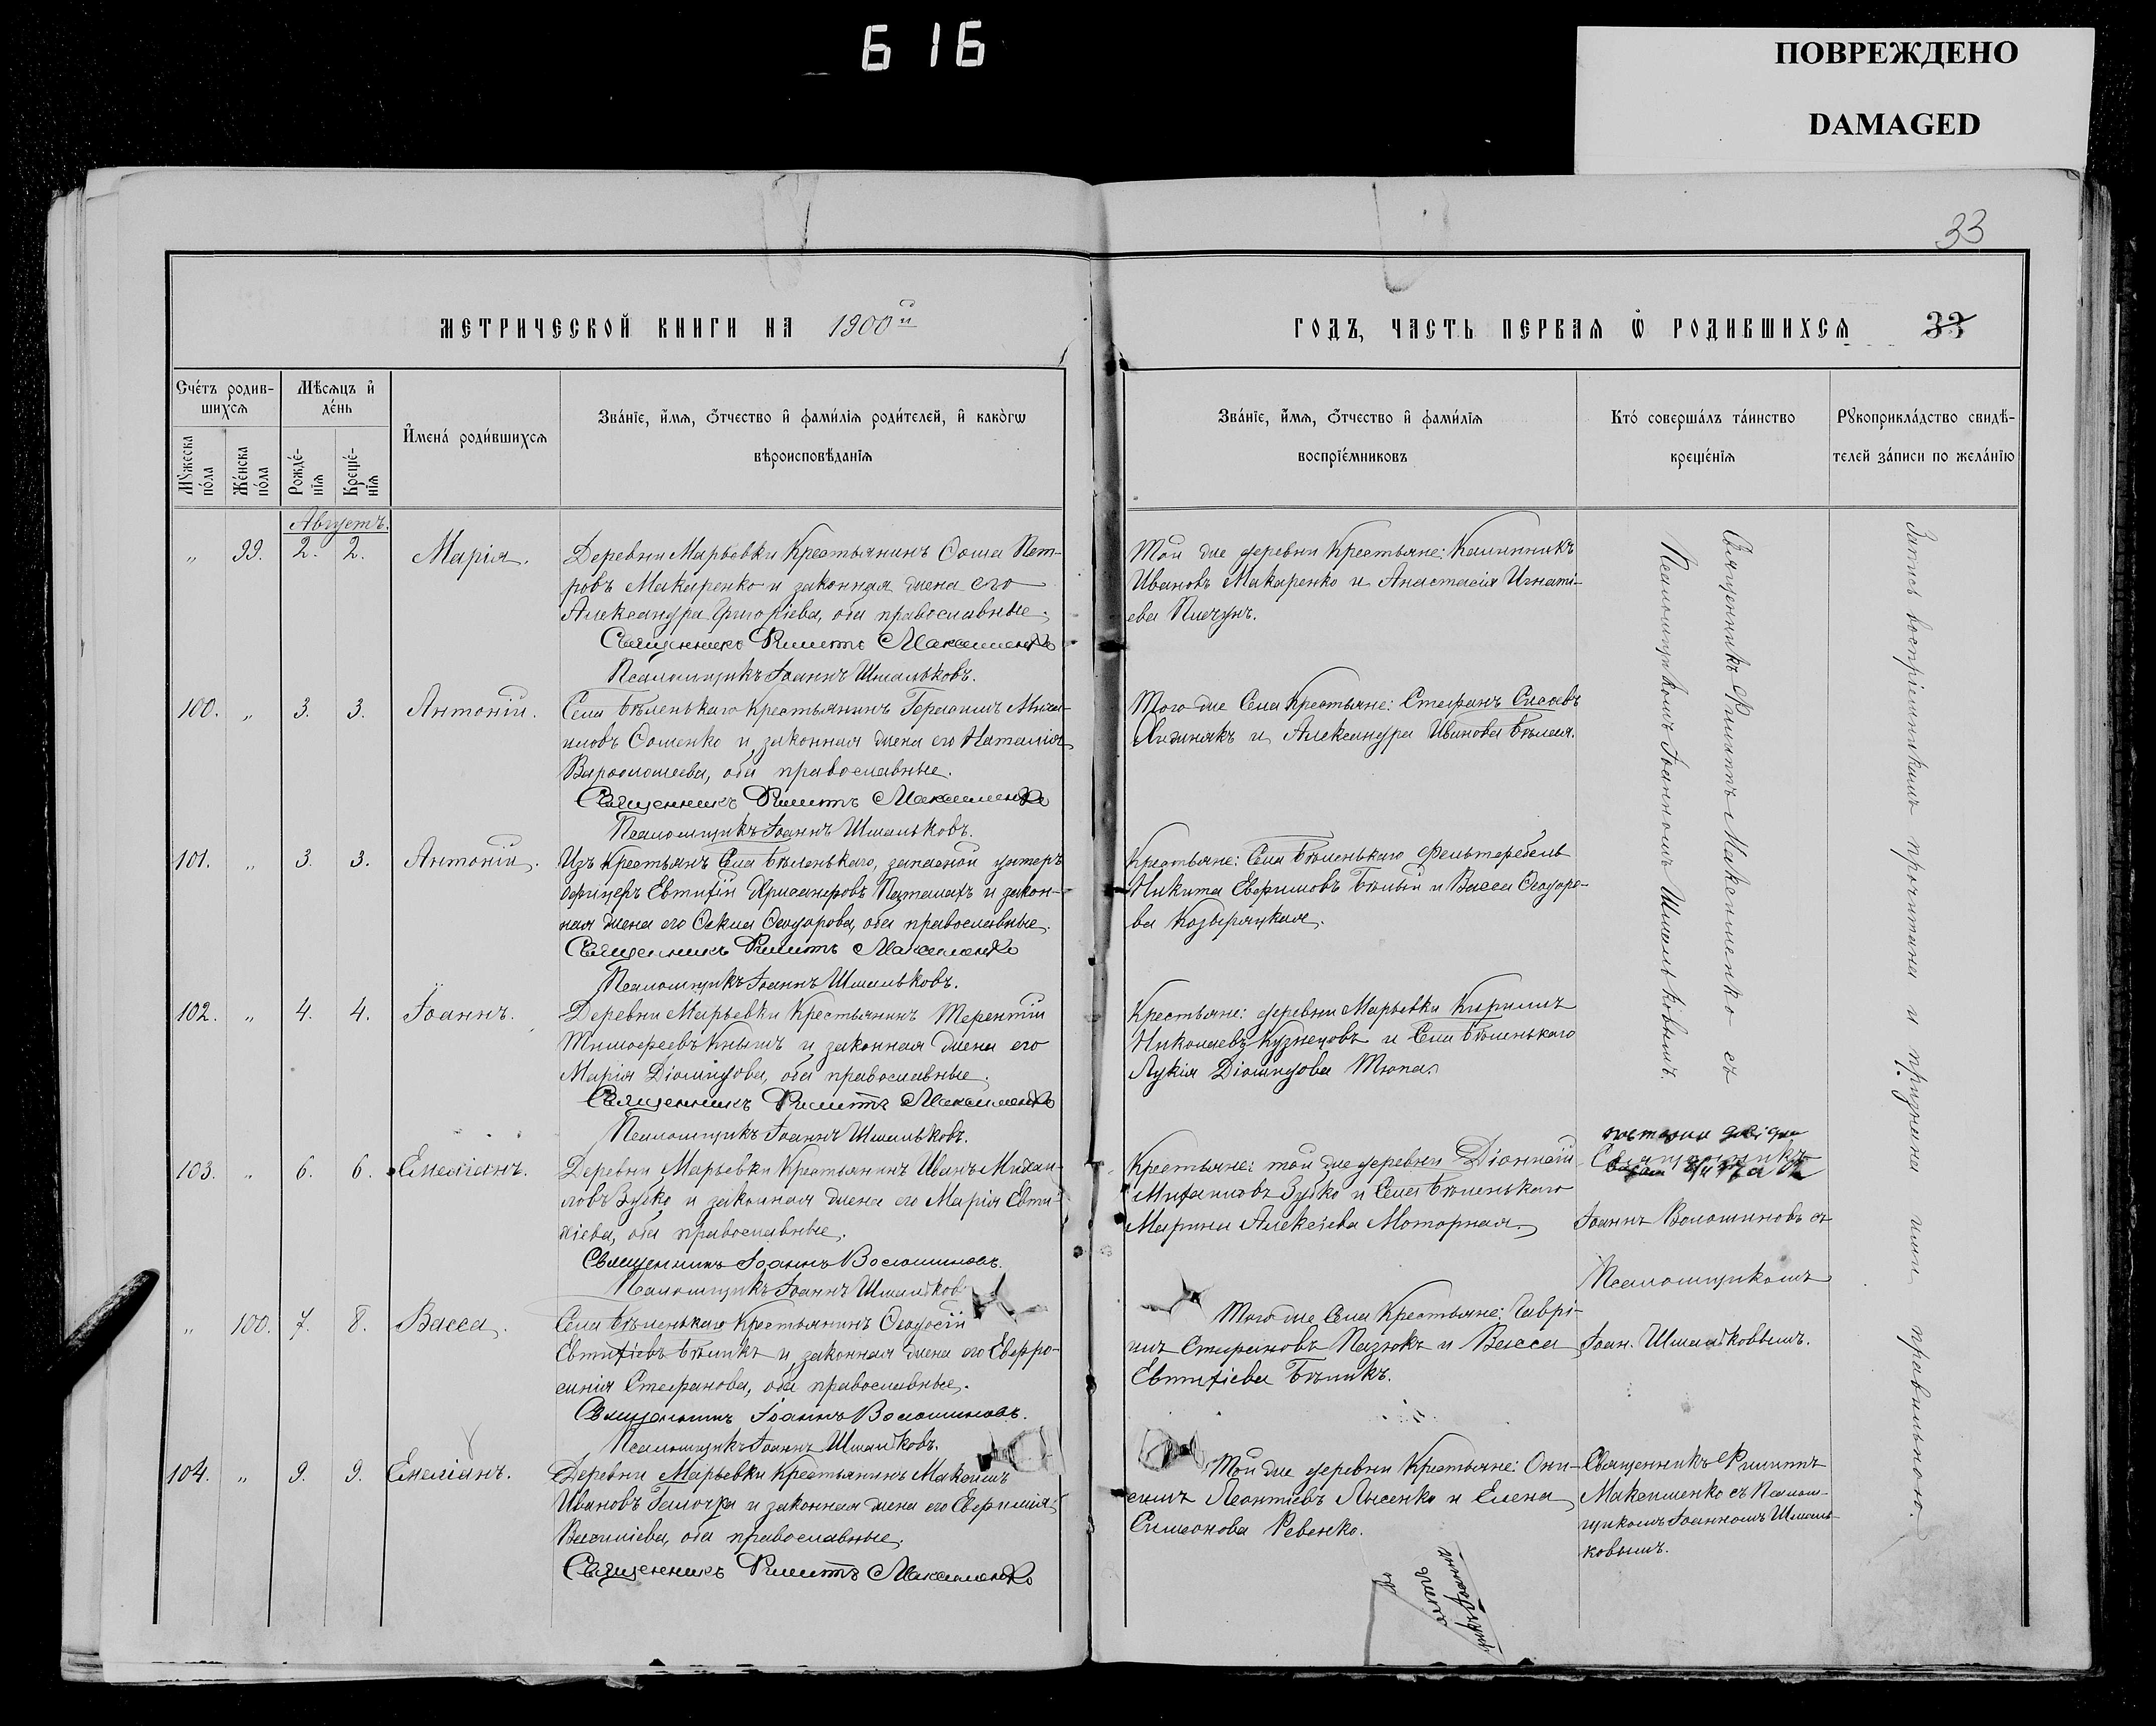 616
ПОВРЕЖДЕНО
DAMAGED
33
МЕТРИЧЕСКОЙ КНИГИ НА 1900й
ГОДЪ, ЧАСТЬ ПЕРВАЯ Ѡ РОДИВШИХСЯ 33
Счетъ родив-
шихся
Мѣсяцъ и
день
Мужеска
пола
Женска
пола
Рожде-
нія
Креще-
нія
Имена родившихся
Званіе, имя, отчество и фамилія родителей, и какогѡ
вѣроисповѣданія
Званіе, имя, отчество и фамилія
воспріемниковъ
Кто совершалъ таинство
крещенія
Рукоприкладство свидѣ-
телей записи по желанію
Августъ.
„ 99. 2. 2. Марія.
Деревни Марьевки Крестьянинъ Ѳома Пет-
ровъ Макаренко и законная жена его
Александра Григоріева, оба православные.
Священникъ Филиппъ Максименко
Псаломщикъ Іоаннъ Шмальковъ.
Той же деревни Крестьяне: Калинникъ
Ивановъ Макаренко и Анастасія Игнаті-
ева Пичугъ.
100. „ 3. 3. Антоній.
Села Бѣленькаго Крестьянинъ Герасимъ Михаи-
ловъ Ѳоменко и законная жена его Наталія
Варѳоломеева, оба православные.
Священникъ Филиппъ Максименко
Псаломщикъ Іоаннъ Шмальковъ.
Того же Села Крестьяне: Стефанъ Сисоевъ
и Александра Иванова Бѣлая.
101. „ 3. 3. Антоній.
Изъ Крестьянъ Села Бѣленькаго, запасной унтеръ
офицеръ Евтихій Хрисанфовъ и закон-
ная жена его Ѳекла Ѳеодорова, оба православные.
Священникъ Филиппъ Максименко
Псаломщикъ Іоаннъ Шмальковъ.
Крестьяне: Села Бѣленькаго Фельтфебель
Никита Евфимовъ Бѣлый и Васса Ѳеодоро-
ва Козырацкая.
102. „ 4. 4. Іоаннъ.
Деревни Марьевки Крестьянинъ Терентій
Тимофеевъ Кнышъ и законная жена его
Марія Діомидова, оба православные.
Священникъ Филиппъ Максименко
Псаломщикъ Іоаннъ Шмальковъ.
Крестьяне: деревни Марьевки Кириллъ
Николаевъ Кузнецовъ и Села Бѣленькаго
Лукія Діомидова Тюпа.
Священникъ Филиппъ Максименко съ
Псаломщикомъ Іоанномъ Шмальковымъ.
103. „ 6. 6. Емеліанъ.
Деревни Марьевки Крестьянинъ Иванъ Михаи-
ловъ Зубко и законная жена его Марія Евти-
хіева, оба православные.
Священникъ Іоаннъ Волошиновъ.
Псаломщикъ Іоаннъ Шмальков
Крестьяне: той же деревни Діонисій
Михаиловъ Зубко и Села Бѣленькаго
Марина Алексіева Моторная.
Священникъ
Іоаннъ Волошиновъ съ
Псаломщикомъ
Іоан. Шмальковымъ.
„ 100. 7. 8. Васса.
Села Бѣленькаго Крестьянинъ Ѳеодосій
Евтихіевъ Бѣликъ и законная жена его Евфро-
синія Стефанова, оба православные.
Священникъ Іоаннъ Волошиновъ.
Псаломщикъ Іоаннъ Шмальковъ.
Того же Села Крестьяне: Гаврі-
илъ Стефановъ Пазюкъ и Васса
Евтихіева Бѣликъ.
104. „ 9. 9. Емеліанъ.
Деревни Марьевки Крестьянинъ Максимъ
Ивановъ и законная жена его Евфимія
Василіева, оба православные.
Священникъ Филиппъ Максименко
Той же деревни Крестьяне: Они-
симъ Леонтіевъ Лысенко и Елена
Симеонова Ревенко.
Священникъ Филиппъ
Максименко съ Псалом-
щикомъ Іоанномъ Шмаль-
ковымъ.
Запись воспріемникамъ прочитана и признана ими правильною.